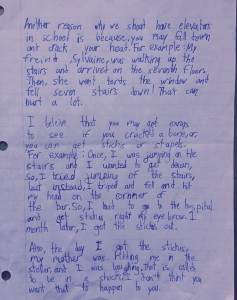 Another reason why we shoat have elevators
in school is because, you may fall down
ant crack your heat. For example: My
freind, Sylvaine, was walking up the
stairs ant arrivet on the seventh floor.
Then, she want tords the window and
fell seven stairs down! That can
hurt a lot.
I beleive that you may get exrays
to see if you cracked a bone, or
you can get stichis or stapels.
For example: Once, I was jumping on the
stairs and I wanted to get down,
so, I tried jumping of the stairs,
but instead, I triped and fell and hit
my head on the cornner of
the bar. So, I hat to go to the hospital
and get stichis right my eye brow. 1
month later, I got the stichis out.
Also, the day I got the stichis,
my mother was pushing me in the
stoller, and I was laughing, that is calld
to be in a shock! I don't think you
want that to happen to you.